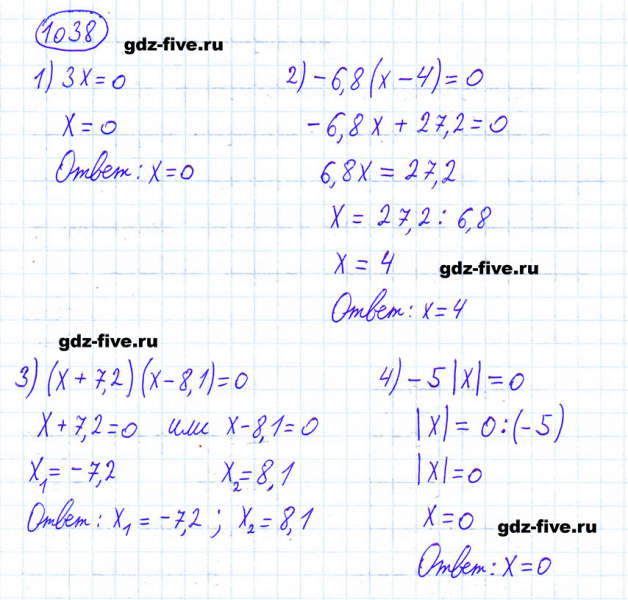 1038
gdz-five.ru
1) 3x = 0
x = 0
Ответ: x = 0
2) -6,8(x - 4) = 0
-6,8x + 27,2 = 0
6,8x = 27,2
x = 27,2 : 6,8
x = 4
gdz-five.ru
Ответ: x = 4
gdz-five.ru
3) (x + 7,2)(x - 8,1) = 0
x + 7,2 = 0 или x - 8,1 = 0
x₁ = -7,2 x₂ = 8,1
Ответ: x₁ = -7,2 ; x₂ = 8,1
4) -5|x| = 0
|x| = 0 : (-5)
|x| = 0
x = 0
gdz-five.ru
Ответ: x = 0